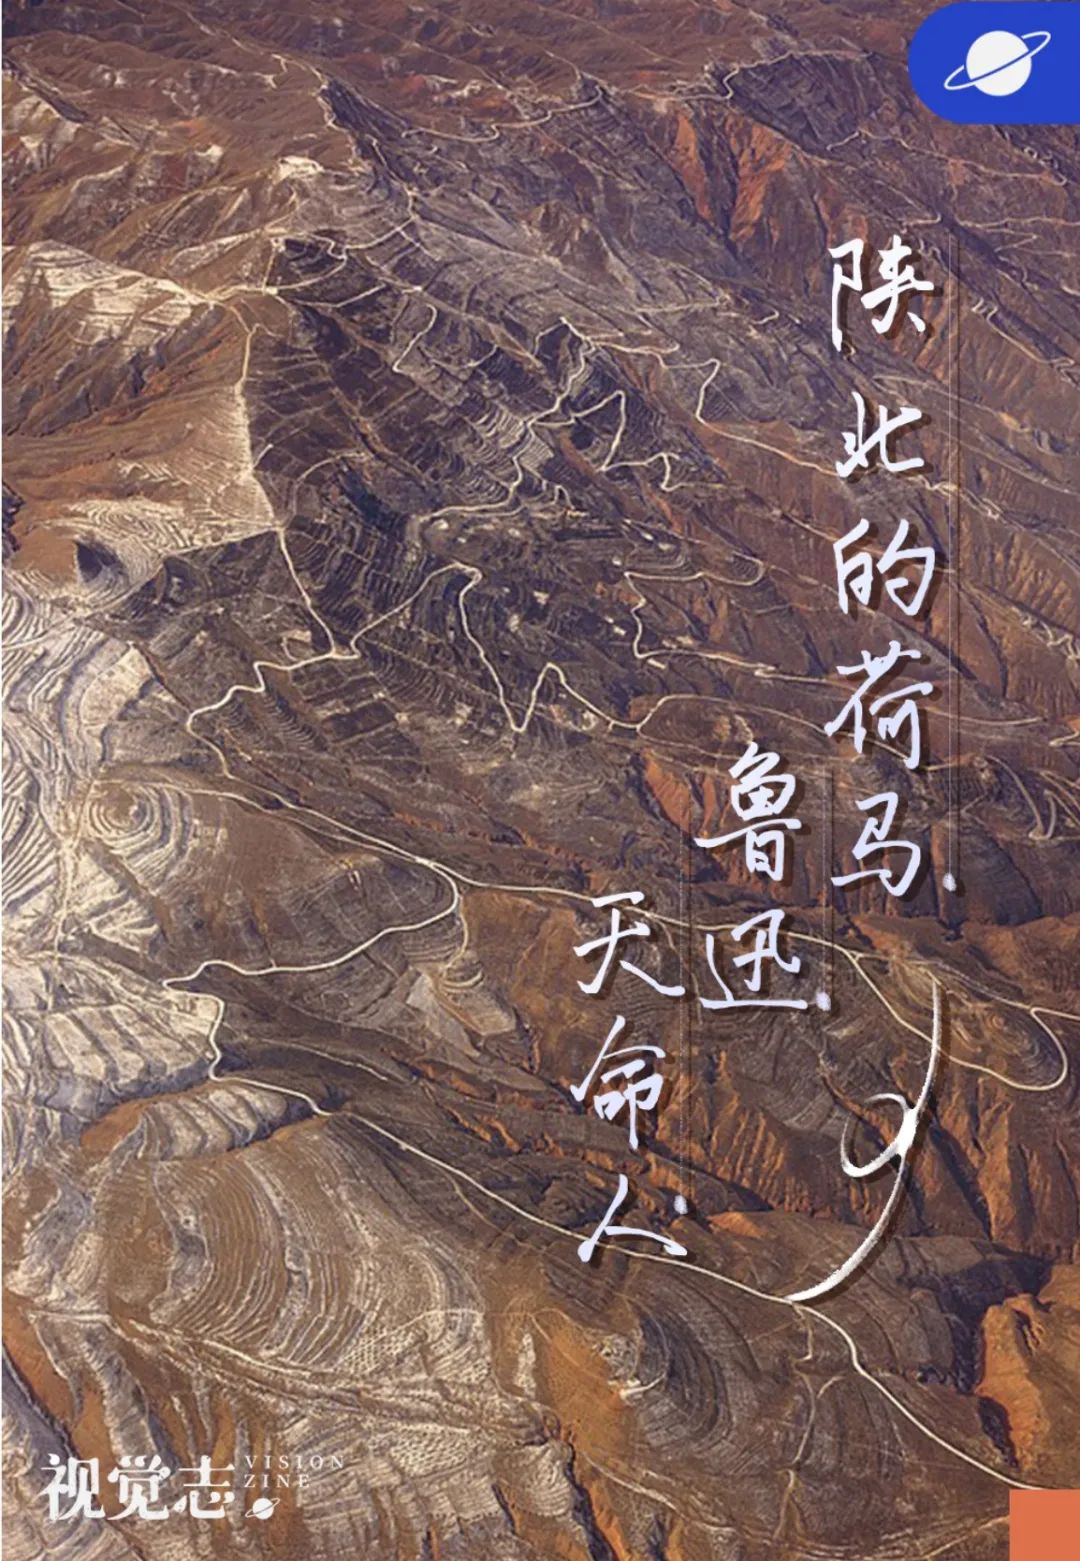 陕北的荷马
鲁迅
天命人
视觉志
VISION
ZINE